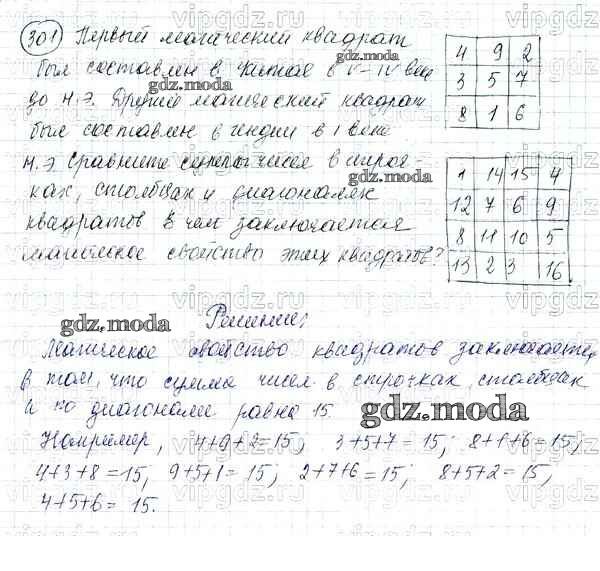 301 Первый магический квадрат
был составлен в Китае в V-IV веке
до н.э. Другой магический квадрат
был составлен в Индии в I веке
н.э. Сравните суммы чисел в строч-
ках, столбцах и диагоналях
квадратов. В чем заключается
магическое свойство этих квадратов?
4 9 2
3 5 7
8 1 6
1 14 15 4
12 7 6 9
8 11 10 5
13 2 3 16
Решение:
Магическое свойство квадратов заключается,
в том, что сумма чисел в строчках, столбцах
и по диагонали равна 15.
Например, 4+9+2=15, 3+5+7=15; 8+1+6=15;
4+3+8=15, 9+5+1=15; 2+7+6=15; 8+5+2=15;
4+5+6=15.
gdz.moda
gdz.moda
gdz.moda
gdz.moda
gdz.moda
vipgdz.ru